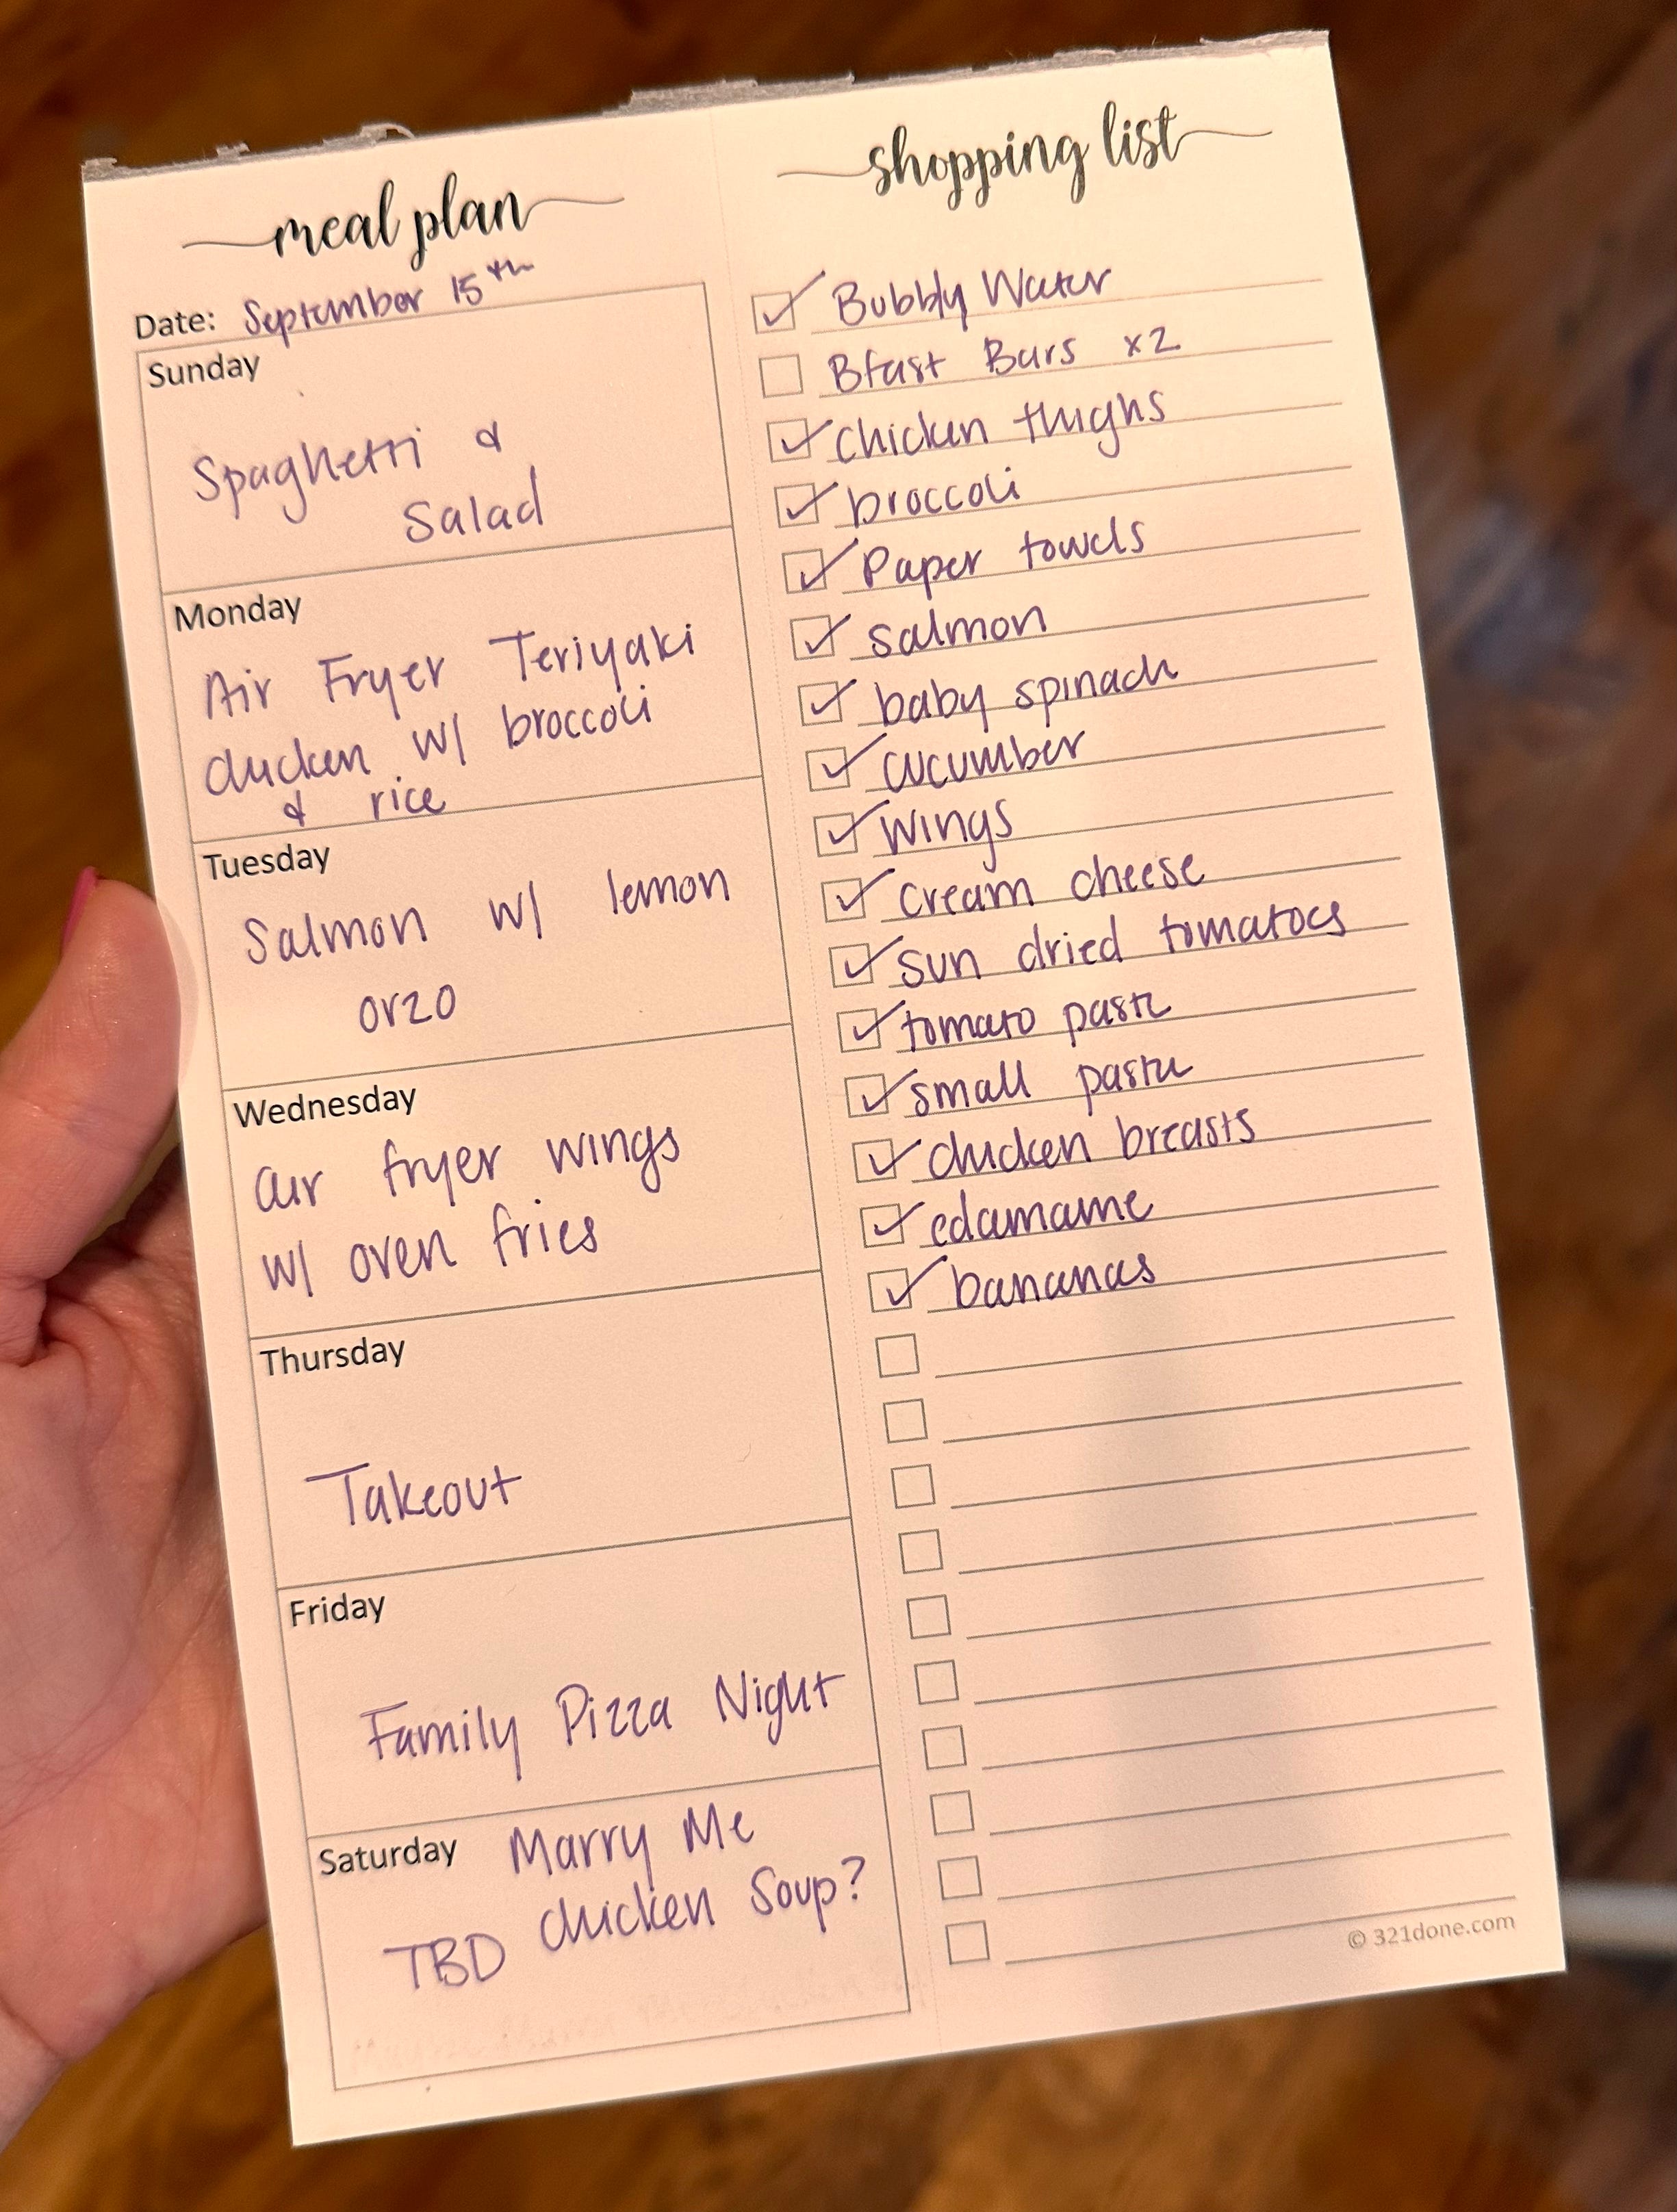 meal plan
Date: September 15th
Sunday
Spaghetti &
Salad
Monday
Air Fryer Teriyaki
chicken w/ broccoli
& rice
Tuesday
Salmon w/ lemon
orzo
Wednesday
air fryer wings
w/ oven fries
Thursday
Takeout
Friday
Family Pizza Night
Saturday Marry Me
chicken Soup?
TBD
shopping list
Bubbly Water
Bfast Bars x2
chicken thighs
broccoli
Paper towels
salmon
baby spinach
cucumber
wings
cream cheese
sun dried tomatoes
tomato paste
small pasta
chicken breasts
edamame
bananas
© 321done.com